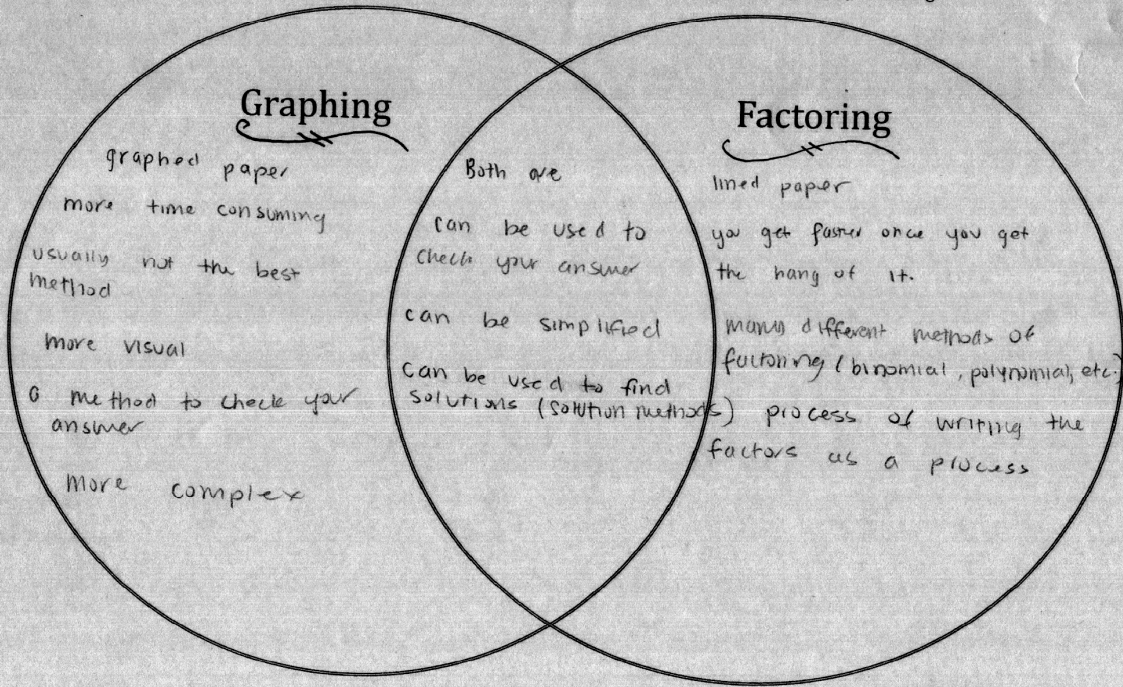 Graphing
graphed paper
more time consuming
usually not the best
method
more visual
a method to check your
answer
More complex
Both are
can be used to
check your answer
can be simplified
can be used to find
solutions (solution methods)
Factoring
lined paper
you get faster once you get
the hang of it.
many different methods of
factoring (binomial, polynomial, etc.)
process of writing the
factors as a process